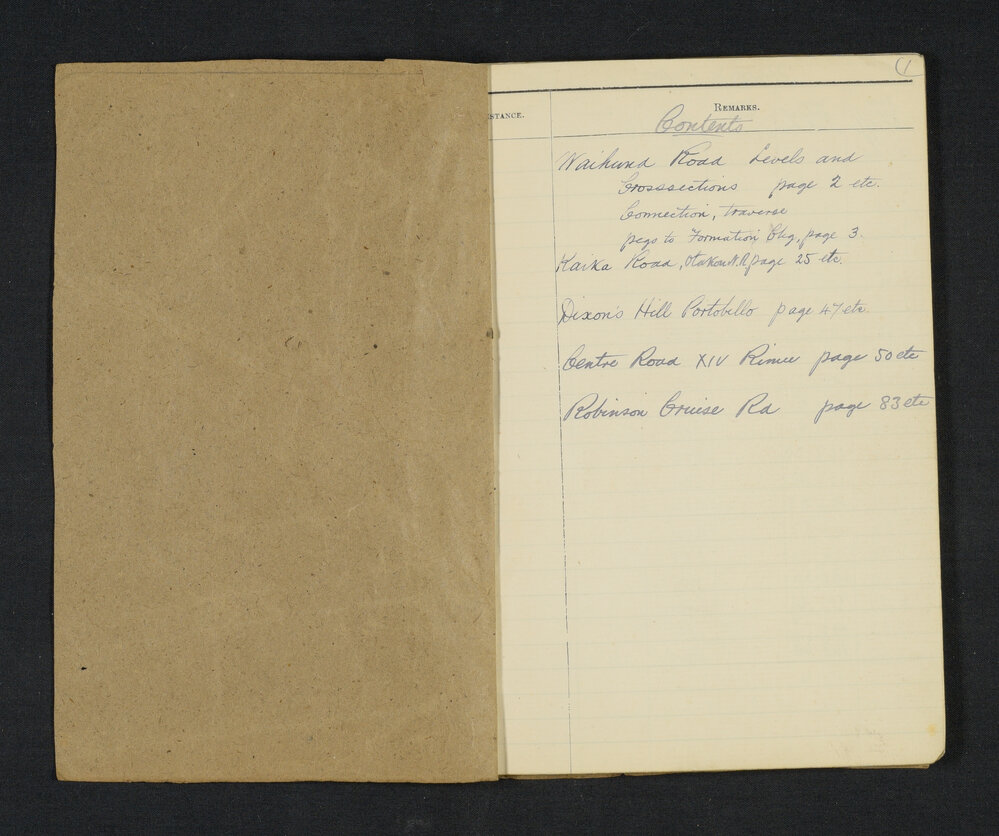 1
STANCE.
REMARKS.
Contents
Waihuna Road Levels and
Crosssections page 2 etc.
Connection, traverse
pegs to Formation Chg, page 3.
Kaika Road, Otakou N.R page 25 etc.
Dixon's Hill Portobello page 47 etc.
Centre Road XIV Rimu page 50 etc
Robinson Cruise Rd page 83 etc